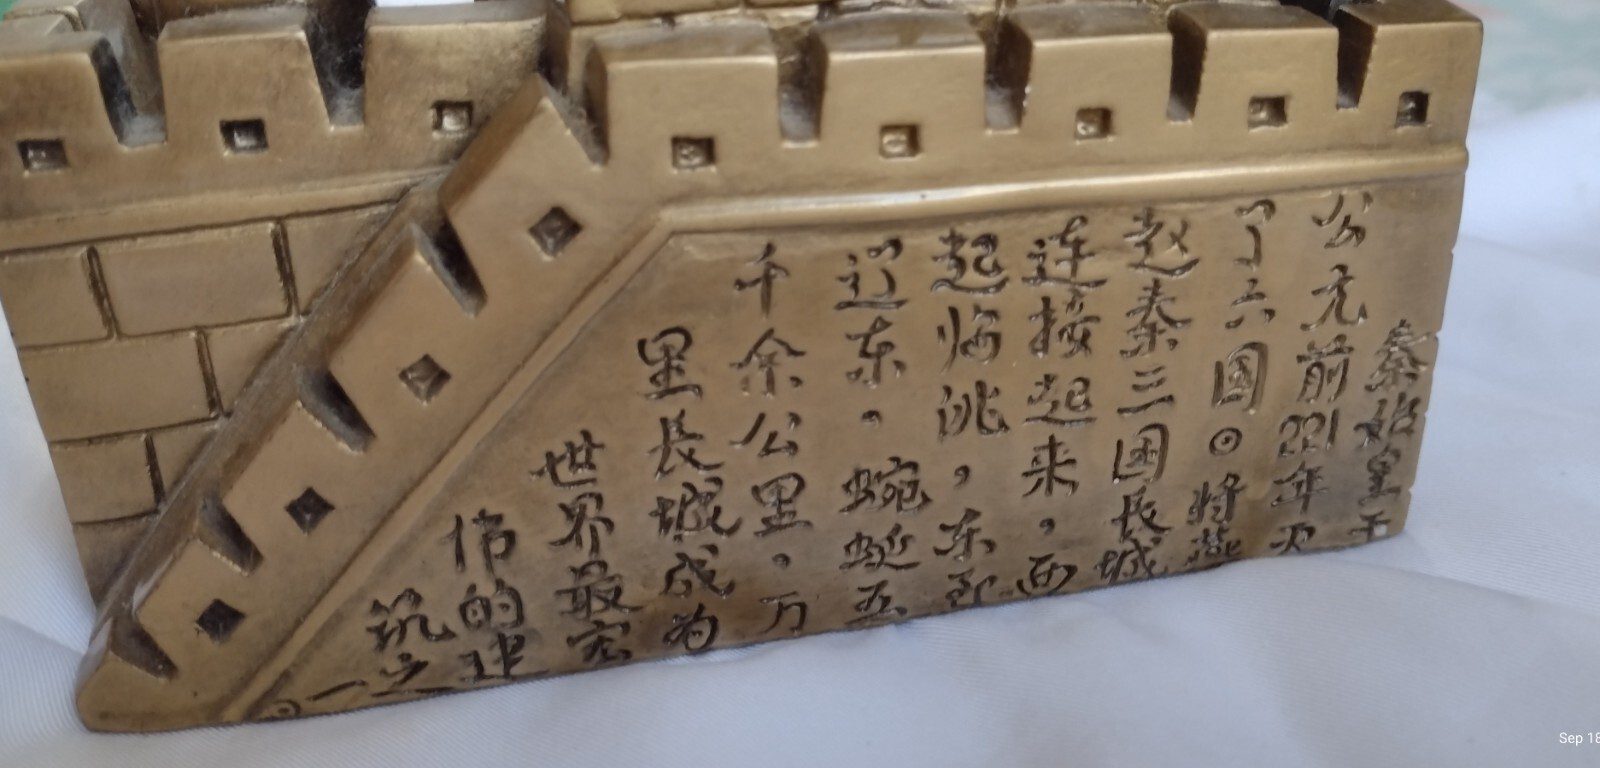 秦始皇于
公元前221年灭
了六国。将燕
赵秦三国长城
连接起来，西
起临洮，东到
辽东。蜿蜒五
千余公里。万
里长城成为
世界最宏
伟的建
筑之
一。
Sep 18